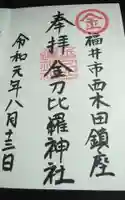 福井市西木田鎮座
奉拝 金刀比羅神社
令和元年八月十三日